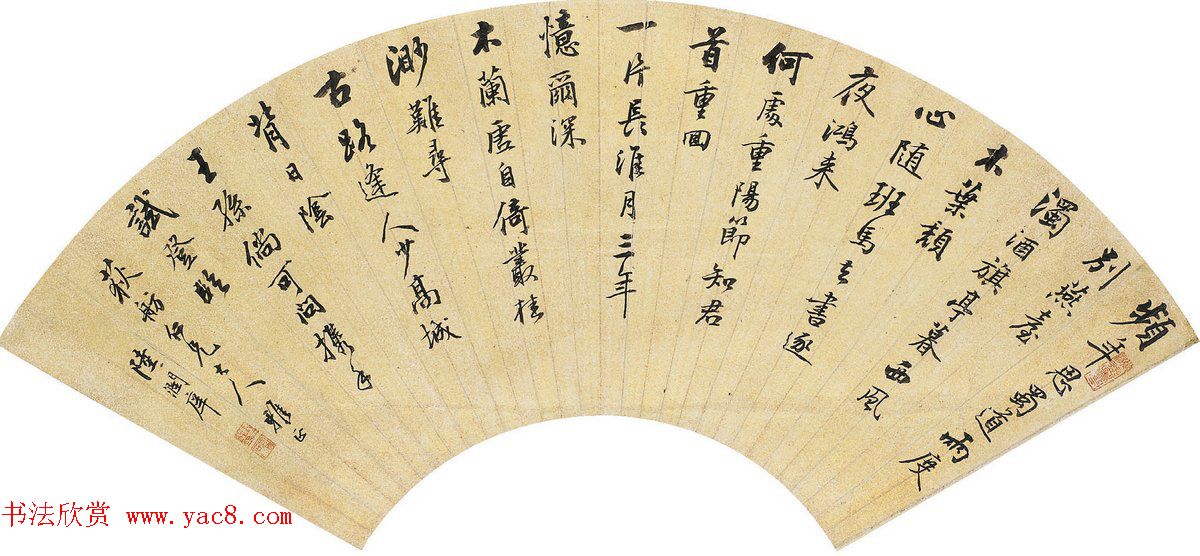 頻年思蜀道兩度
別燕臺
濁酒旗亭暮西風
木葉頹
心随班馬去書逐
夜鴻来
何處重陽節知君
首重回
一片長淮月三年
憶爾深
木蘭虛自倚叢桂
渺難尋
古路逢人少高城
背日陰
王孫倘可問攜手
試登臨
荻舫仁兄大人雅正
陸潤庠
书法欣赏 www.yac8.com